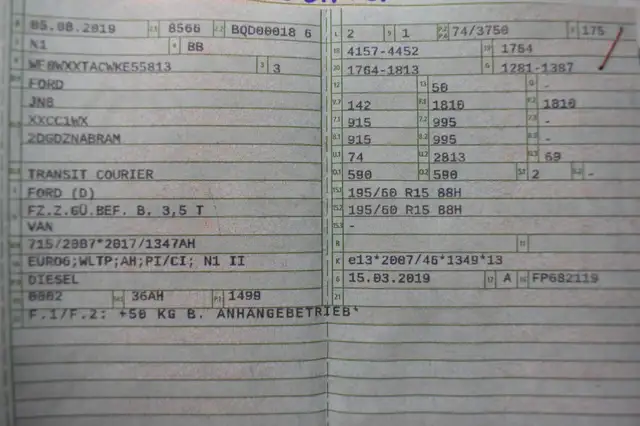 05.08.2019 8566 BQD00018 6
N1 BB
WF0WXXTACWKE55813 3
FORD
JN8
XXCC1WX
2DGDZNABRAM
TRANSIT COURIER
FORD (D)
FZ.Z.GÜ.BEF. B. 3,5 T
VAN
715/2007*2017/1347AH
EURO6;WLTP;AH;PI/CI; N1 II
DIESEL
0002 36AH 1499
F.1/F.2: +50 KG B. ANHANGEBETRIEB*
2 1 74/3750 175
4157-4452 1764
1764-1813 1281-1387
50 -
142 1810 1810
915 995 -
915 995 -
74 2813 69
590 590 2 -
195/60 R15 88H
195/60 R15 88H
-
K e13*2007/46*1349*13
15.03.2019 A FP682119
21